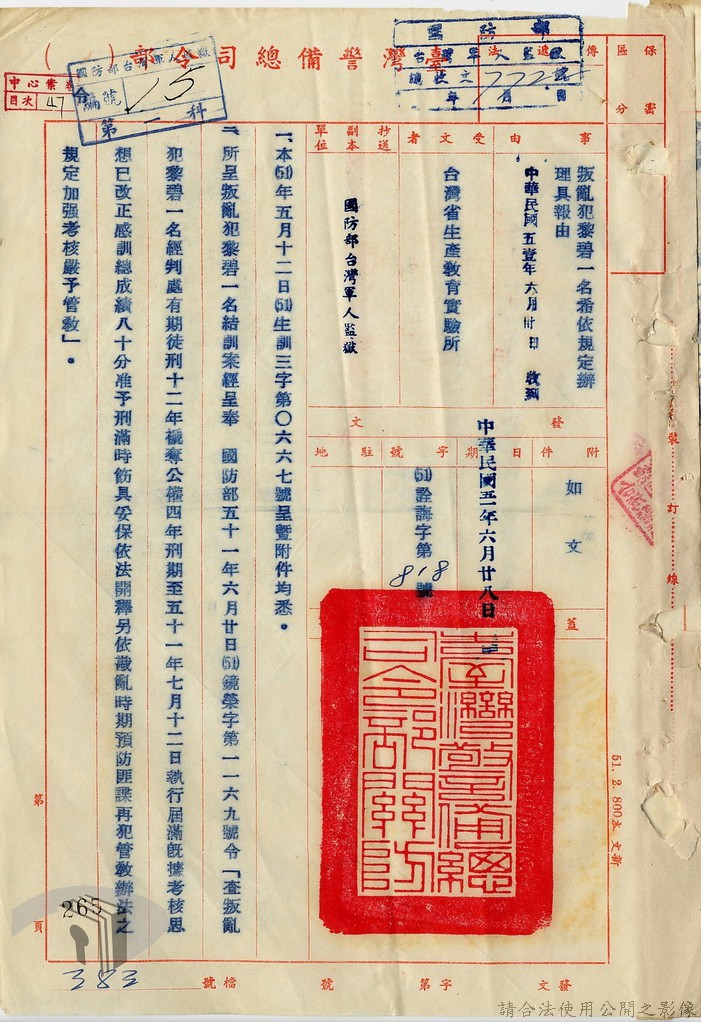 臺灣警備總司令部(令)
保密區分
傳遞法
國防部
台灣軍人監獄
總收文 772 號
年 月 日
國防部台灣軍人監獄
編號 15
第一科
中心業務
目次 47
事由
叛亂犯黎碧一名希依規定辦
理具報由
中華民國五壹年六月廿日 收到
受文者
台灣省生產教育實驗所
抄送副本單位
國防部台灣軍人監獄
發文
附件
如文
日期
中華民國五一年六月廿八日
字號
(51)詮誨字第818號
駐地
蓋
臺灣警備總司令部關防
一、本(51)年五月十二日(51)生訓三字第〇六六七號呈暨附件均悉。
二、所呈叛亂犯黎碧一名結訓案經呈奉 國防部五十一年六月廿日(51)鏡榮字第一一六九號令「查叛亂
犯黎碧一名經判處有期徒刑十二年褫奪公權四年刑期至五十一年七月十二日執行屆滿既據考核思
想已改正感訓總成績八十分准予刑滿時飭具妥保依法開釋另依戡亂時期預防匪諜再犯管教辦法之
規定加强考核嚴予管教」。
裝訂線
51. 2. 800本 文新
第 頁
265
383
發文 字第 號 檔號
請合法使用公開之影像